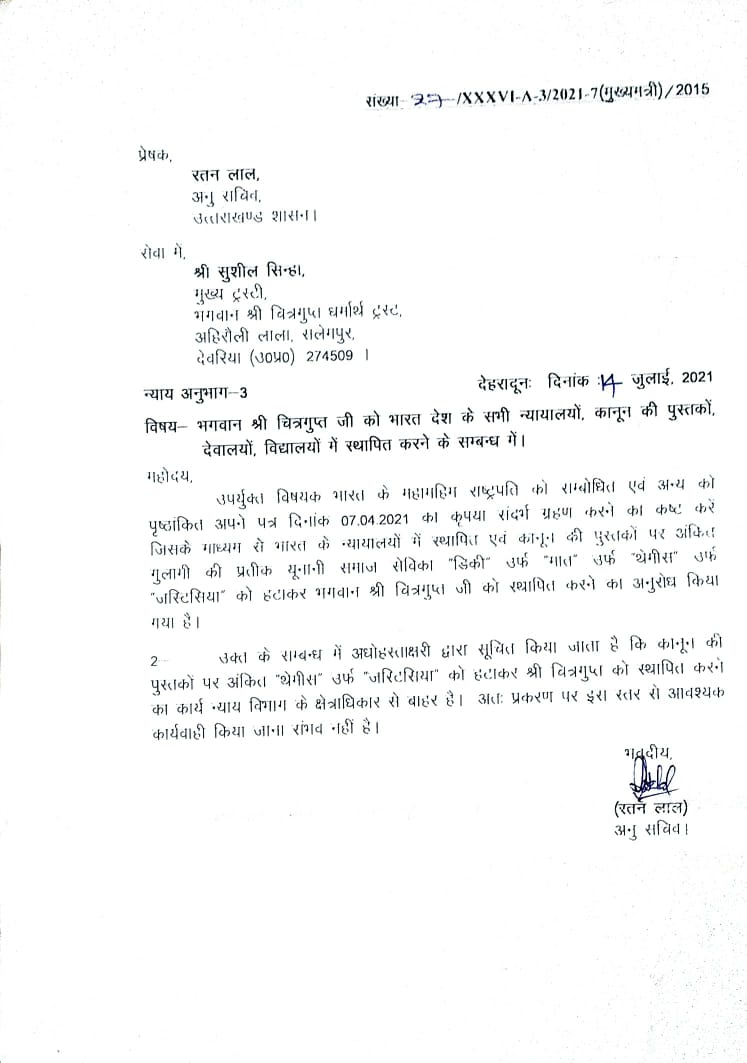 संख्या- 27 /XXXVI-A-3/2021-7(मुख्यमंत्री)/2015
प्रेषक,
रतन लाल,
अनु सचिव,
उत्तराखण्ड शासन।
सेवा में,
श्री सुशील सिन्हा,
मुख्य ट्रस्टी,
भगवान श्री चित्रगुप्त धर्मार्थ ट्रस्ट,
अहिरौली लाला, सलेमपुर,
देवरिया (उ0प्र0) 274509 ।
न्याय अनुभाग-3 देहरादूनः दिनांक :14 जुलाई, 2021
विषय- भगवान श्री चित्रगुप्त जी को भारत देश के सभी न्यायालयों, कानून की पुस्तकों,
देवालयों, विद्यालयों में स्थापित करने के सम्बन्ध में।
महोदय,
उपर्युक्त विषयक भारत के महामहिम राष्ट्रपति को सम्बोधित एवं अन्य को
पृष्ठांकित अपने पत्र दिनांक 07.04.2021 का कृपया संदर्भ ग्रहण करने का कष्ट करें
जिसके माध्यम से भारत के न्यायालयों में स्थापित एवं कानून की पुस्तकों पर अंकित
गुलामी की प्रतीक यूनानी समाज सेविका "डिकी" उर्फ "मात" उर्फ "थेमीस" उर्फ
"जस्टिसिया" को हटाकर भगवान श्री चित्रगुप्त जी को स्थापित करने का अनुरोध किया
गया है।
2- उक्त के सम्बन्ध में अधोहस्ताक्षरी द्वारा सूचित किया जाता है कि कानून की
पुस्तकों पर अंकित "थेमीस" उर्फ "जस्टिसिया" को हटाकर श्री चित्रगुप्त को स्थापित करने
का कार्य न्याय विभाग के क्षेत्राधिकार से बाहर है। अतः प्रकरण पर इस स्तर से आवश्यक
कार्यवाही किया जाना संभव नहीं है।
भवदीय,
(रतन लाल)
अनु सचिव।